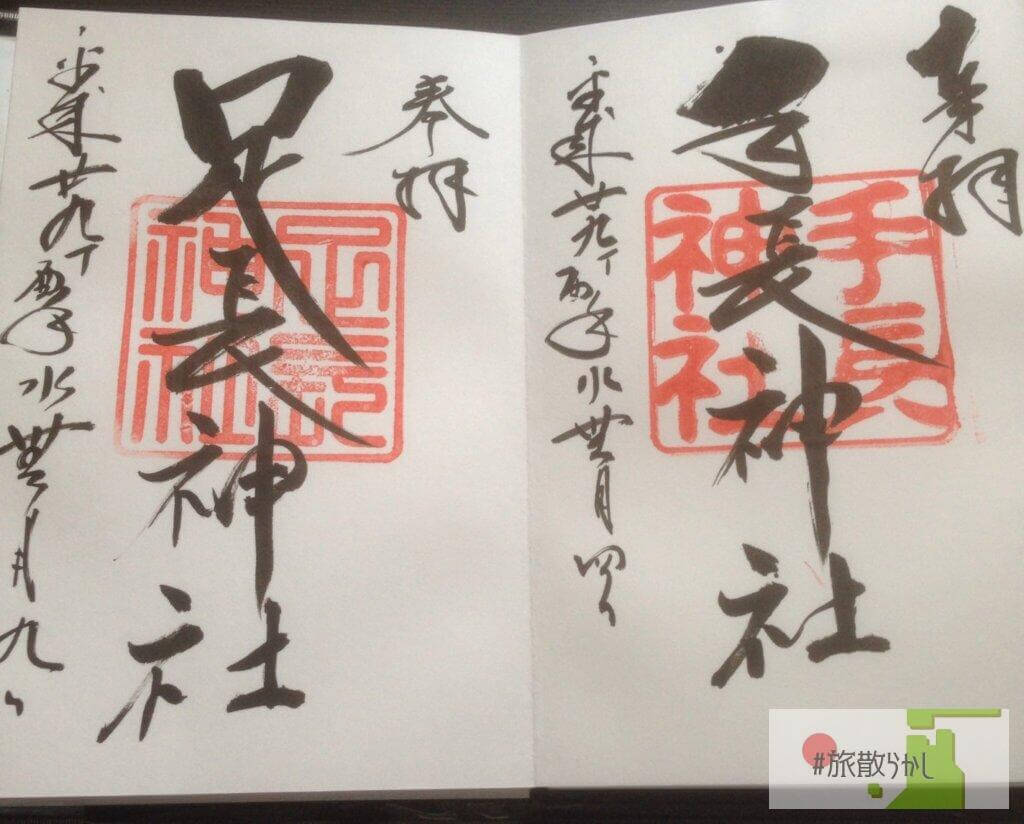 奉拝
手長神社
手長
神社
平成廿九丁酉年水無月四日
奉拝
足長神社
足長
神社
平成廿九丁酉年水無月九日
#旅散らかし